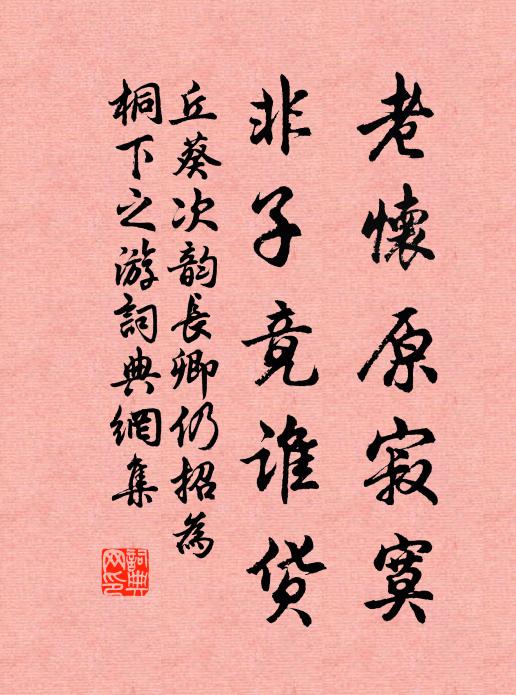 老懷原寂寞
非子竟誰貨
丘葵次韵長卿仍招為
桐下之游詞典網集
詞典
网印